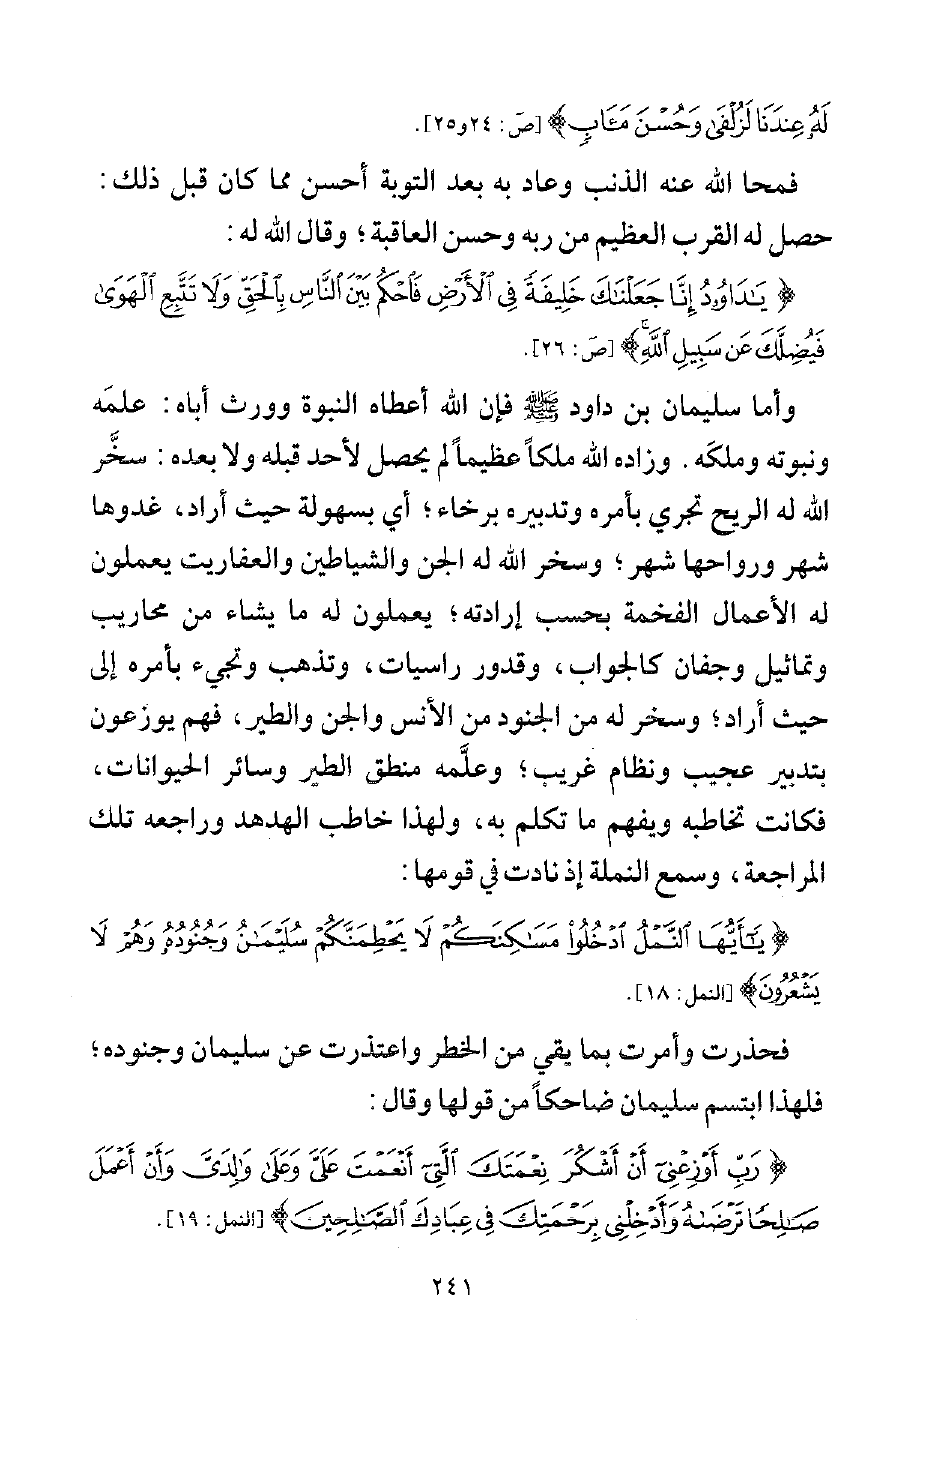 لَهُۥ عِندَنَا لَزُلْفَىٰ وَحُسْنَ مَـَٔابٍ ﴾ [صَ : ٢٤و٢٥].
فمحا الله عنه الذنب وعاد به بعد التوبة أحسن مما كان قبل ذلك :
حصل له القرب العظيم من ربه وحسن العاقبة ؛ وقال الله له :
﴿ يَٰدَاوُۥدُ إِنَّا جَعَلْنَٰكَ خَلِيفَةً فِى ٱلْأَرْضِ فَٱحْكُم بَيْنَ ٱلنَّاسِ بِٱلْحَقِّ وَلَا تَتَّبِعِ ٱلْهَوَىٰ
فَيُضِلَّكَ عَن سَبِيلِ ٱللَّهِۚ ﴾ [صَ : ٢٦].
وأما سليمان بن داود ﷺ فإن الله أعطاه النبوة وورث أباه : علمَه
ونبوته وملكَه . وزاده الله ملكاً عظيماً لم يحصل لأحد قبله ولا بعده : سخَّر
الله له الريح تجري بأمره وتدبيره برخاء ؛ أي بسهولة حيث أراد، غدوها
شهر ورواحها شهر ؛ وسخر الله له الجن والشياطين والعفاريت يعملون
له الأعمال الفخمة بحسب إرادته ؛ يعملون له ما يشاء من محاريب
وتماثيل وجفان كالجواب، وقدور راسيات، وتذهب وتجيء بأمره إلى
حيث أراد ؛ وسخر له من الجنود من الأنس والجن والطير، فهم يوزعون
بتدبير عجيب ونظام غريب ؛ وعلَّمه منطق الطير وسائر الحيوانات،
فكانت تخاطبه ويفهم ما تكلم به، ولهذا خاطب الهدهد وراجعه تلك
المراجعة، وسمع النملة إذ نادت في قومها :
﴿ يَٰٓأَيُّهَا ٱلنَّمْلُ ٱدْخُلُوا۟ مَسَٰكِنَكُمْ لَا يَحْطِمَنَّكُمْ سُلَيْمَٰنُ وَجُنُودُهُۥ وَهُمْ لَا
يَشْعُرُونَ ﴾ [النمل : ١٨].
فحذرت وأمرت بما يقي من الخطر واعتذرت عن سليمان وجنوده ؛
فلهذا ابتسم سليمان ضاحكاً من قولها وقال :
﴿ رَبِّ أَوْزِعْنِىٓ أَنْ أَشْكُرَ نِعْمَتَكَ ٱلَّتِىٓ أَنْعَمْتَ عَلَىَّ وَعَلَىٰ وَٰلِدَىَّ وَأَنْ أَعْمَلَ
صَٰلِحًا تَرْضَىٰهُ وَأَدْخِلْنِى بِرَحْمَتِكَ فِى عِبَادِكَ ٱلصَّٰلِحِينَ ﴾ [النمل : ١٩].
٢٤١